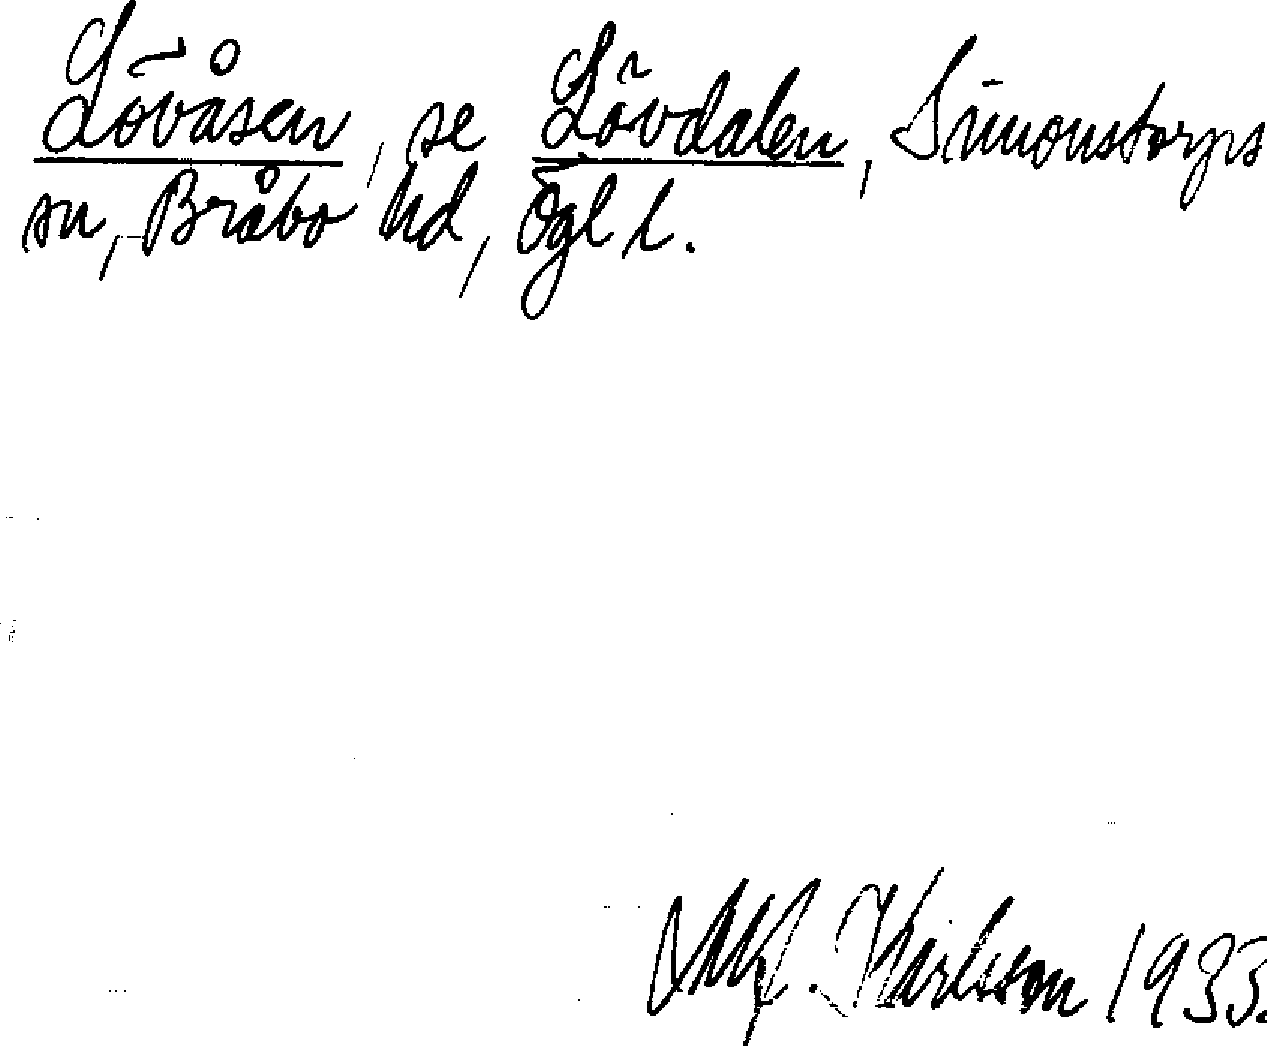 Lövåsen, se Lövdalen, Simonstorps
sn, Bråbo hd, Ögl l.
Karlsson 1933.